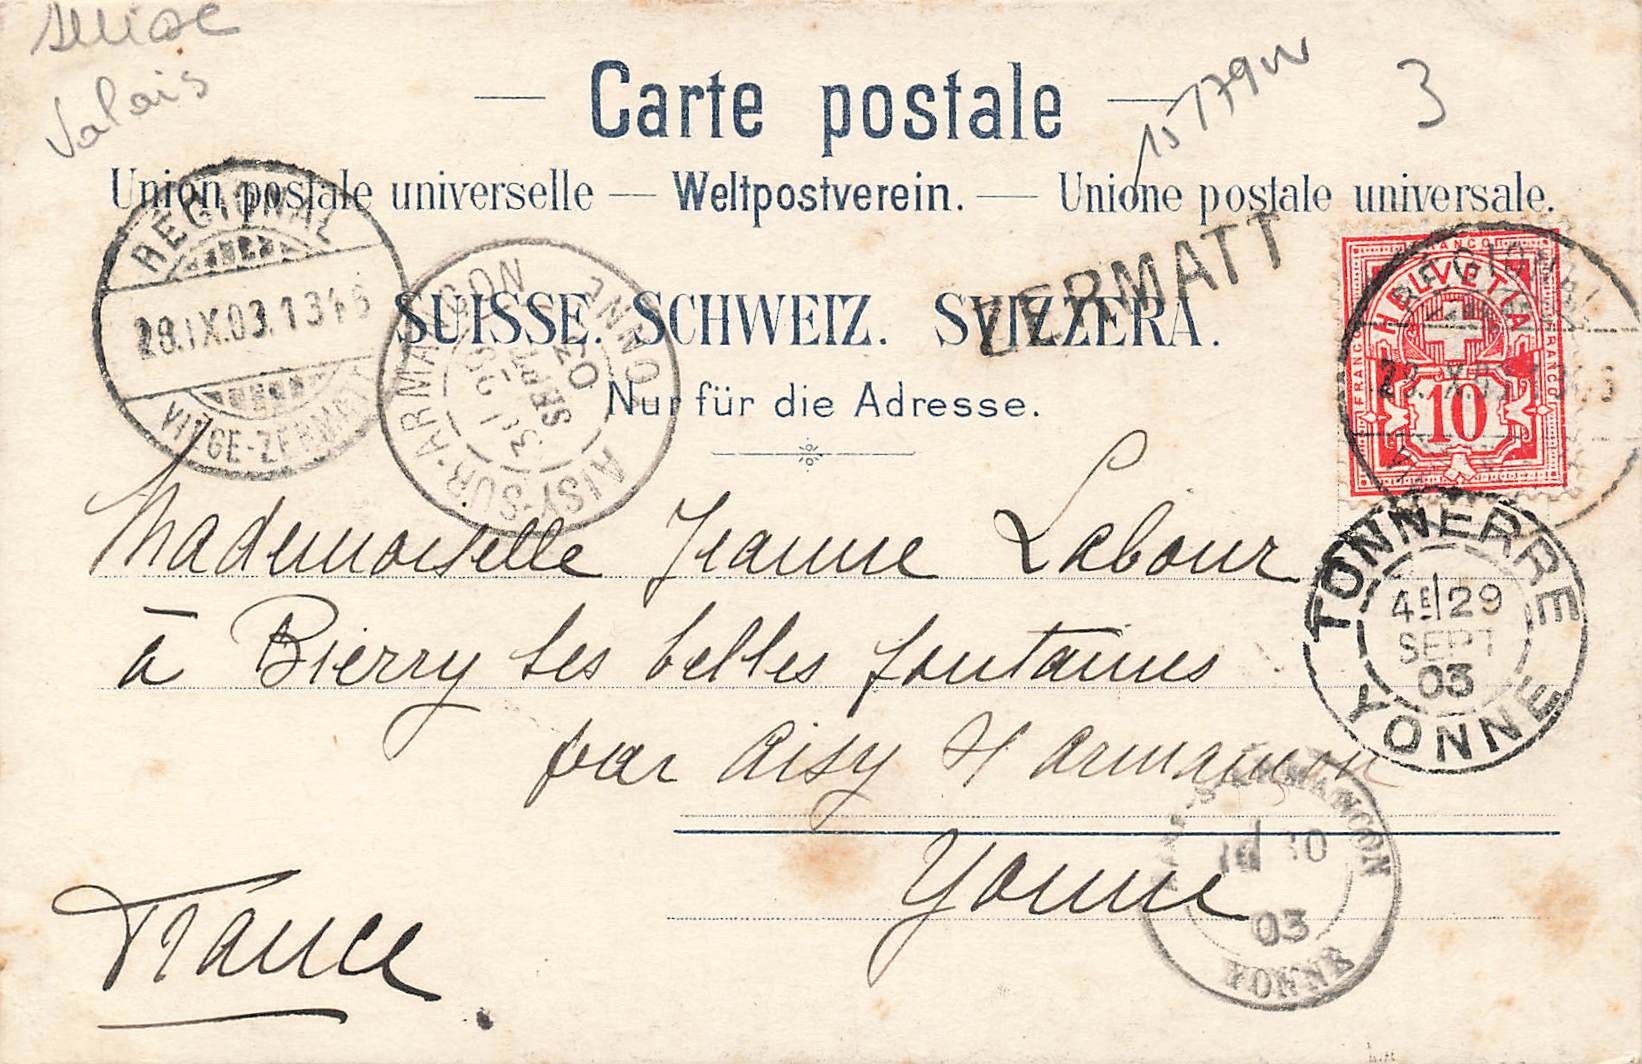 Suisse
Valais
15179W
3
— Carte postale —
Union postale universelle — Weltpostverein. — Unione postale universale.
SUISSE. SCHWEIZ. SVIZZERA.
Nur für die Adresse.
ZERMATT
REGIONAL
28.IX.03.13
VIÈGE-ZERMATT
AISY-SUR-ARMANÇON
SEPT
03
YONNE
FRANCO
HELVETIA
FRANCO
FRANCO
10
REGIONAL
Mademoiselle Jeanne Labour
à Bierry les belles fontaines
par Aisy s/ Armançon
Yonne
France
TONNERRE
4E/29
SEPT
03
YONNE
ARMANÇON
03
YONNE